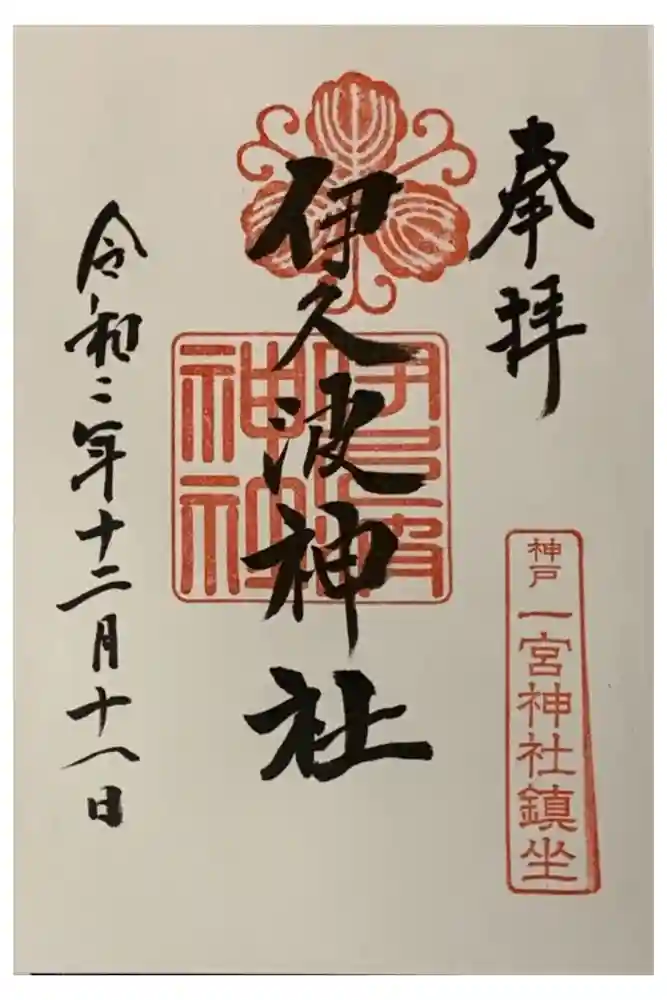 奉拝
神戸 一宮神社鎮坐
伊久波神社
伊久波神社
令和二年十二月十八日